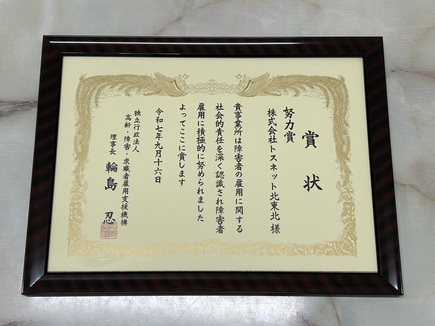 賞状
努力賞
株式会社トスネット北東北 様
貴事業所は障害者の雇用に関する
社会的責任を深く認識され障害者
雇用に積極的に努められました
よってここに賞します
令和七年九月十六日
独立行政法人
高齢・障害・求職者雇用支援機構
理事長 輪島 忍